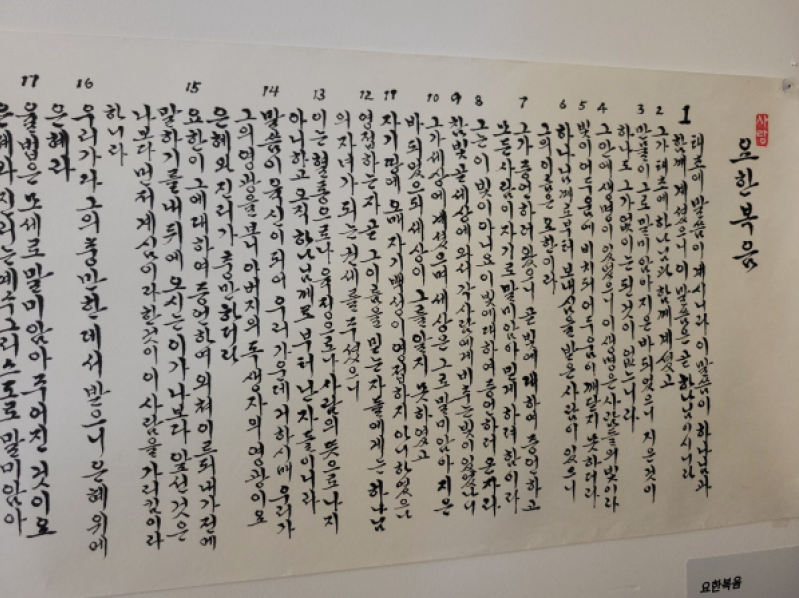 사랑
요한복음
1
태초에 말씀이 계시니라 이 말씀이 하나님과
함께 계셨으니 이 말씀은 곧 하나님이시니라
2
그가 태초에 하나님과 함께 계셨고
3
만물이 그로 말미암아 지은바 되었으니 지은것이
하나도 그가 없이는 된 것이 없느니라
4
그 안에 생명이 있었으니 이 생명은 사람들의 빛이라
5
빛이 어두움에 비치되 어두움이 깨닫지 못하더라
6
하나님께로부터 보내심을 받은 사람이 있으니
그의 이름은 요한이라
7
그가 증언하러 왔으니 곧 빛에 대하여 증언하고
모든 사람이 자기로 말미암아 믿게 하려 함이라
8
그는 이 빛이 아니요 이 빛에 대하여 증언하러 온 자라
9
참 빛 곧 세상에 와서 각 사람에게 비추는 빛이 있었나니
10
그가 세상에 계셨으며 세상은 그로 말미암아 지은
바 되었으되 세상이 그를 알지 못하였고
11
자기 땅에 오매 자기 백성이 영접하지 아니하였으나
12
영접하는 자 곧 그 이름을 믿는 자들에게는 하나님
의 자녀가 되는 권세를 주셨으니
13
이는 혈통으로나 육정으로나 사람의 뜻으로 나지
아니하고 오직 하나님께로부터 난 자들이니라
14
말씀이 육신이 되어 우리 가운데 거하시매 우리가
그의 영광을 보니 아버지의 독생자의 영광이요
은혜와 진리가 충만하더라
15
요한이 그에 대하여 증언하여 외쳐 이르되 내가 전에
말하기를 내 뒤에 오시는 이가 나보다 앞선 것은
나보다 먼저 계심이라 한것이 이 사람을 가리킴이라
하니라
16
우리가 다 그의 충만한 데서 받으니 은혜 위에
은혜라
17
율법은 모세로 말미암아 주어진 것이요
은혜와 진리는 예수 그리스도로 말미암아
요한복음